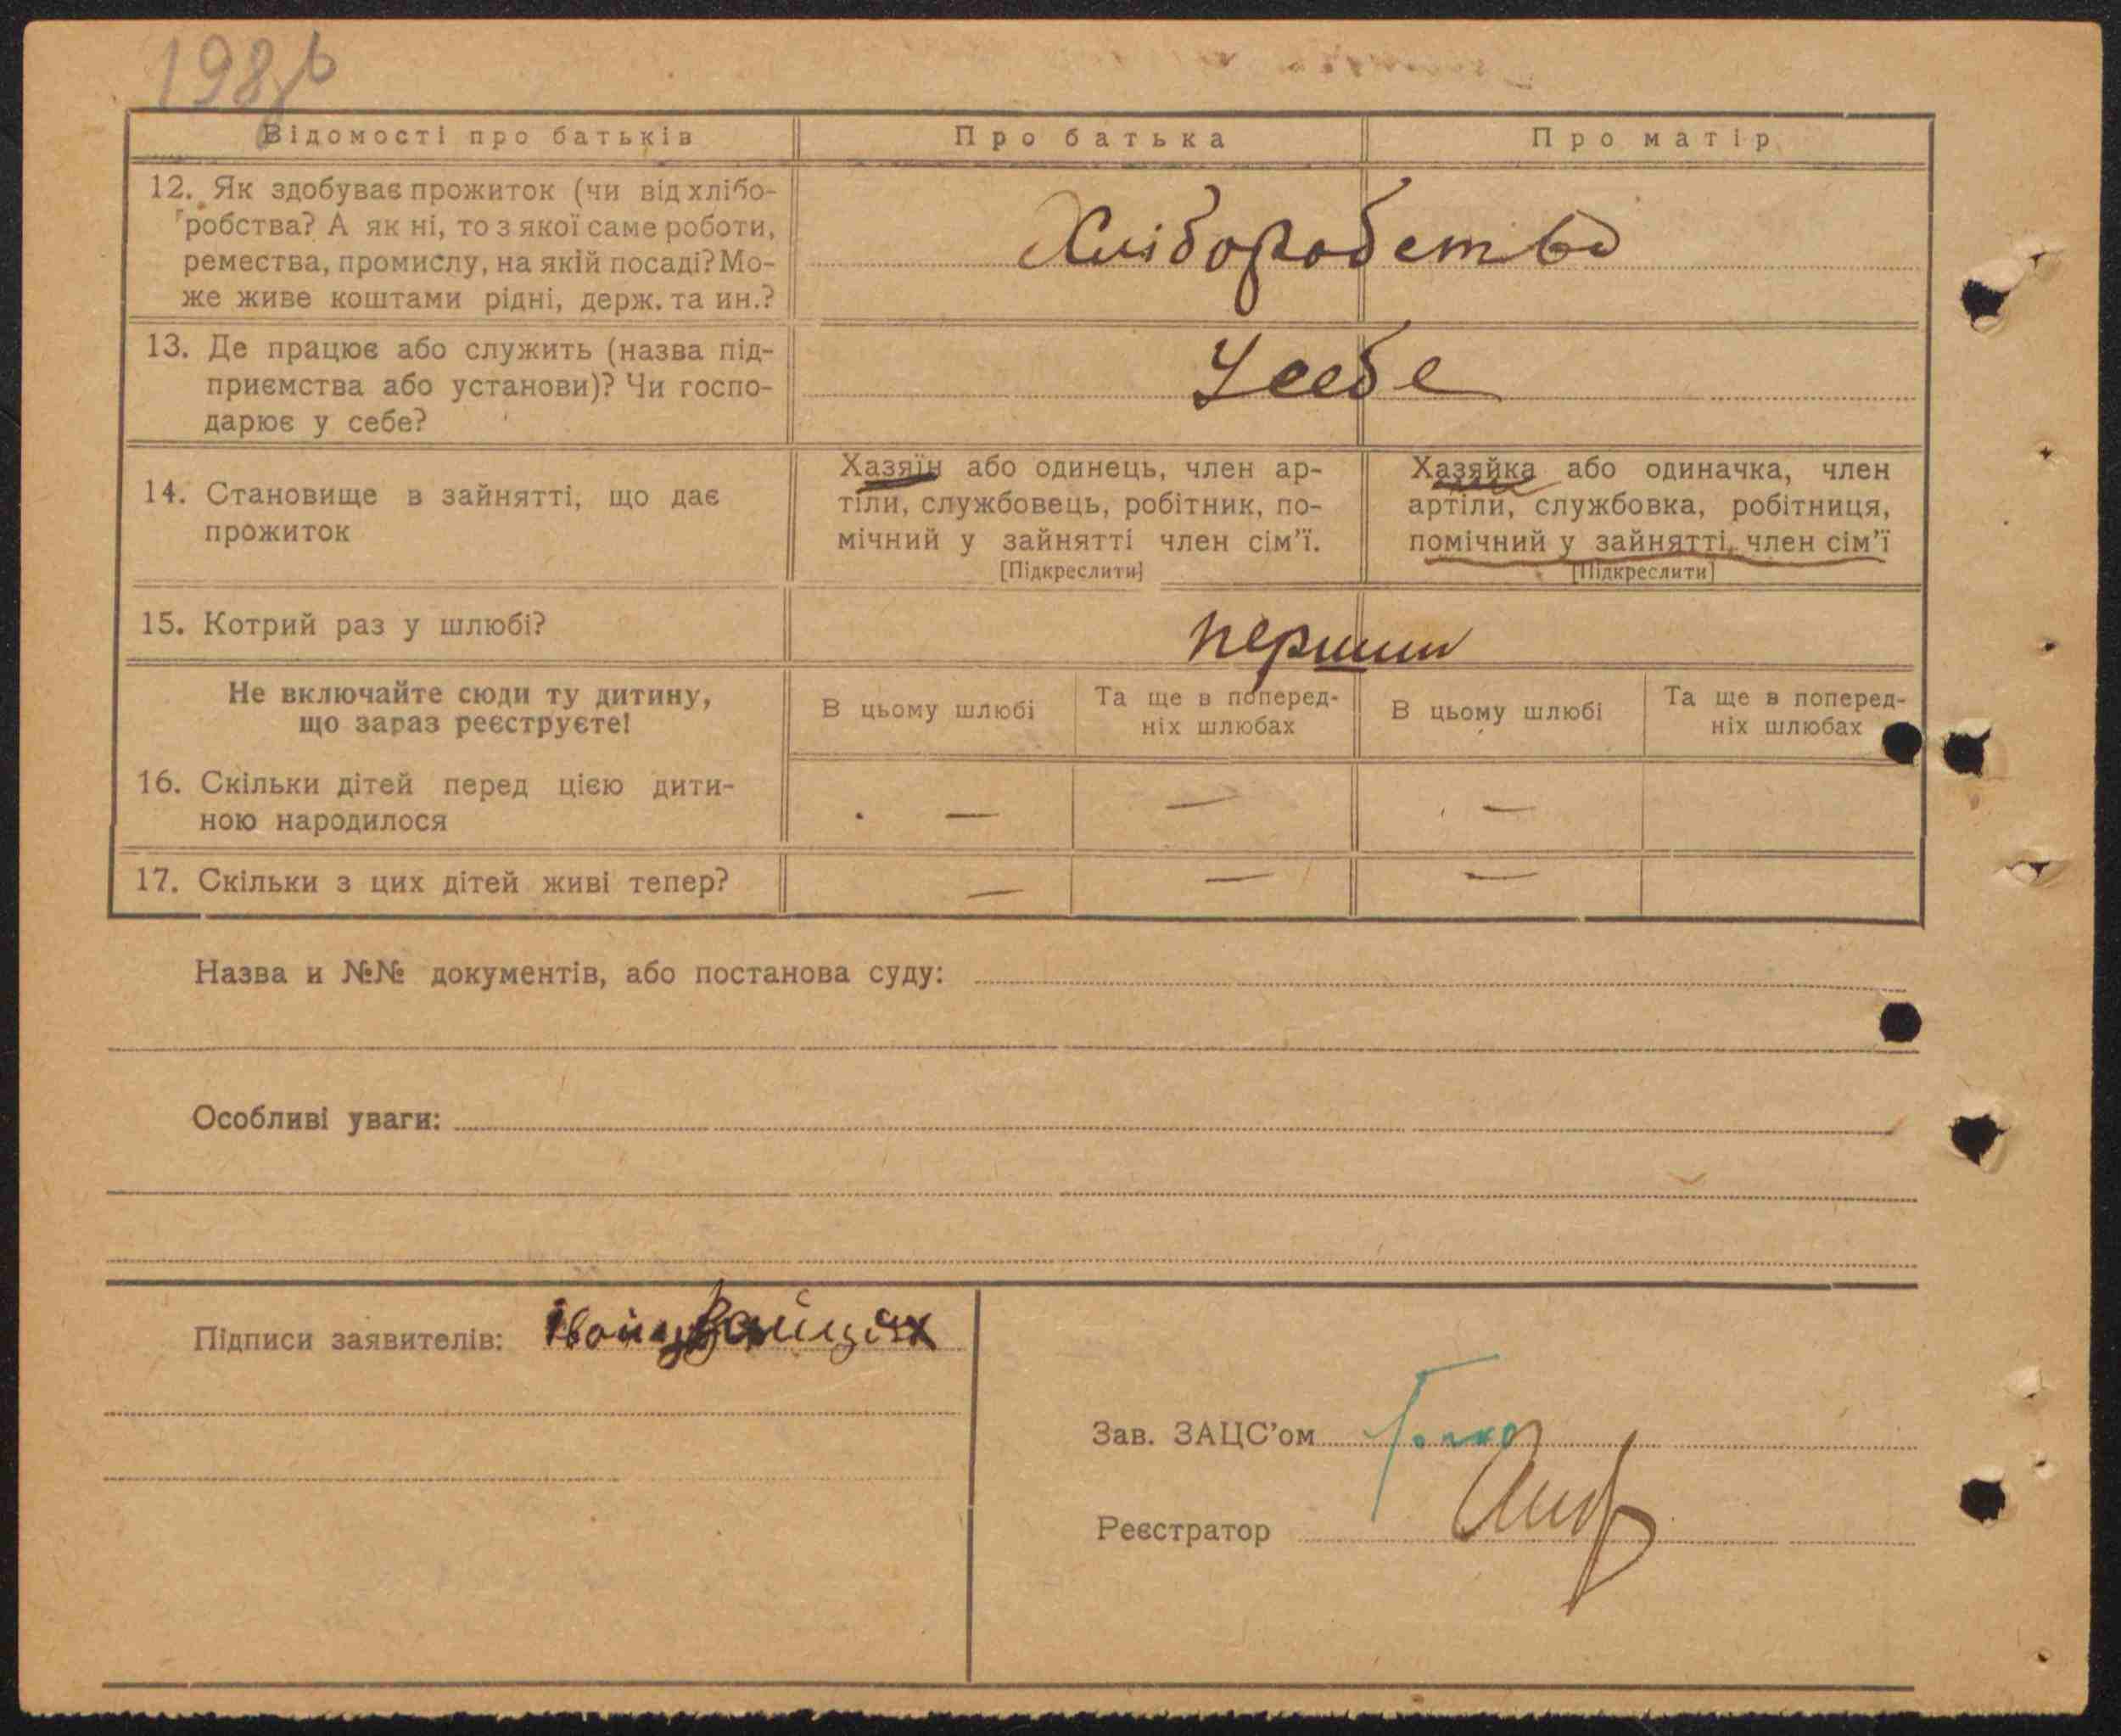 198 
Відомості про батьків
Про батька
Про матір
12. Як здобуває прожиток (чи від хлібо-
робства? А як ні, то з якої саме роботи,
ремества, промислу, на якій посаді? Мо-
же живе коштами рідні, держ. та ин.?
Хліборобство
13. Де працює або служить (назва під-
приємства або установи)? Чи госпо-
дарює у себе?
У себе
14. Становище в зайнятті, що дає
прожиток
Хазяїн або одинець, член ар-
тіли, службовець, робітник, по-
мічний у зайнятті член сім'ї.
[Підкреслити]
Хазяйка або одиначка, член
артіли, службовка, робітниця,
помічний у зайнятті, член сім'ї
[Підкреслити]
15. Котрий раз у шлюбі?
перший
Не включайте сюди ту дитину,
що зараз реєструєте!
В цьому шлюбі
Та ще в поперед-
ніх шлюбах
В цьому шлюбі
Та ще в поперед-
ніх шлюбах
16. Скільки дітей перед цією дити-
ною народилося
— — —
17. Скільки з цих дітей живі тепер?
— — —
Назва и №№ документів, або постанова суду:
Особливі уваги:
Підписи заявителів:
Зав. ЗАЦС'ом
Реєстратор